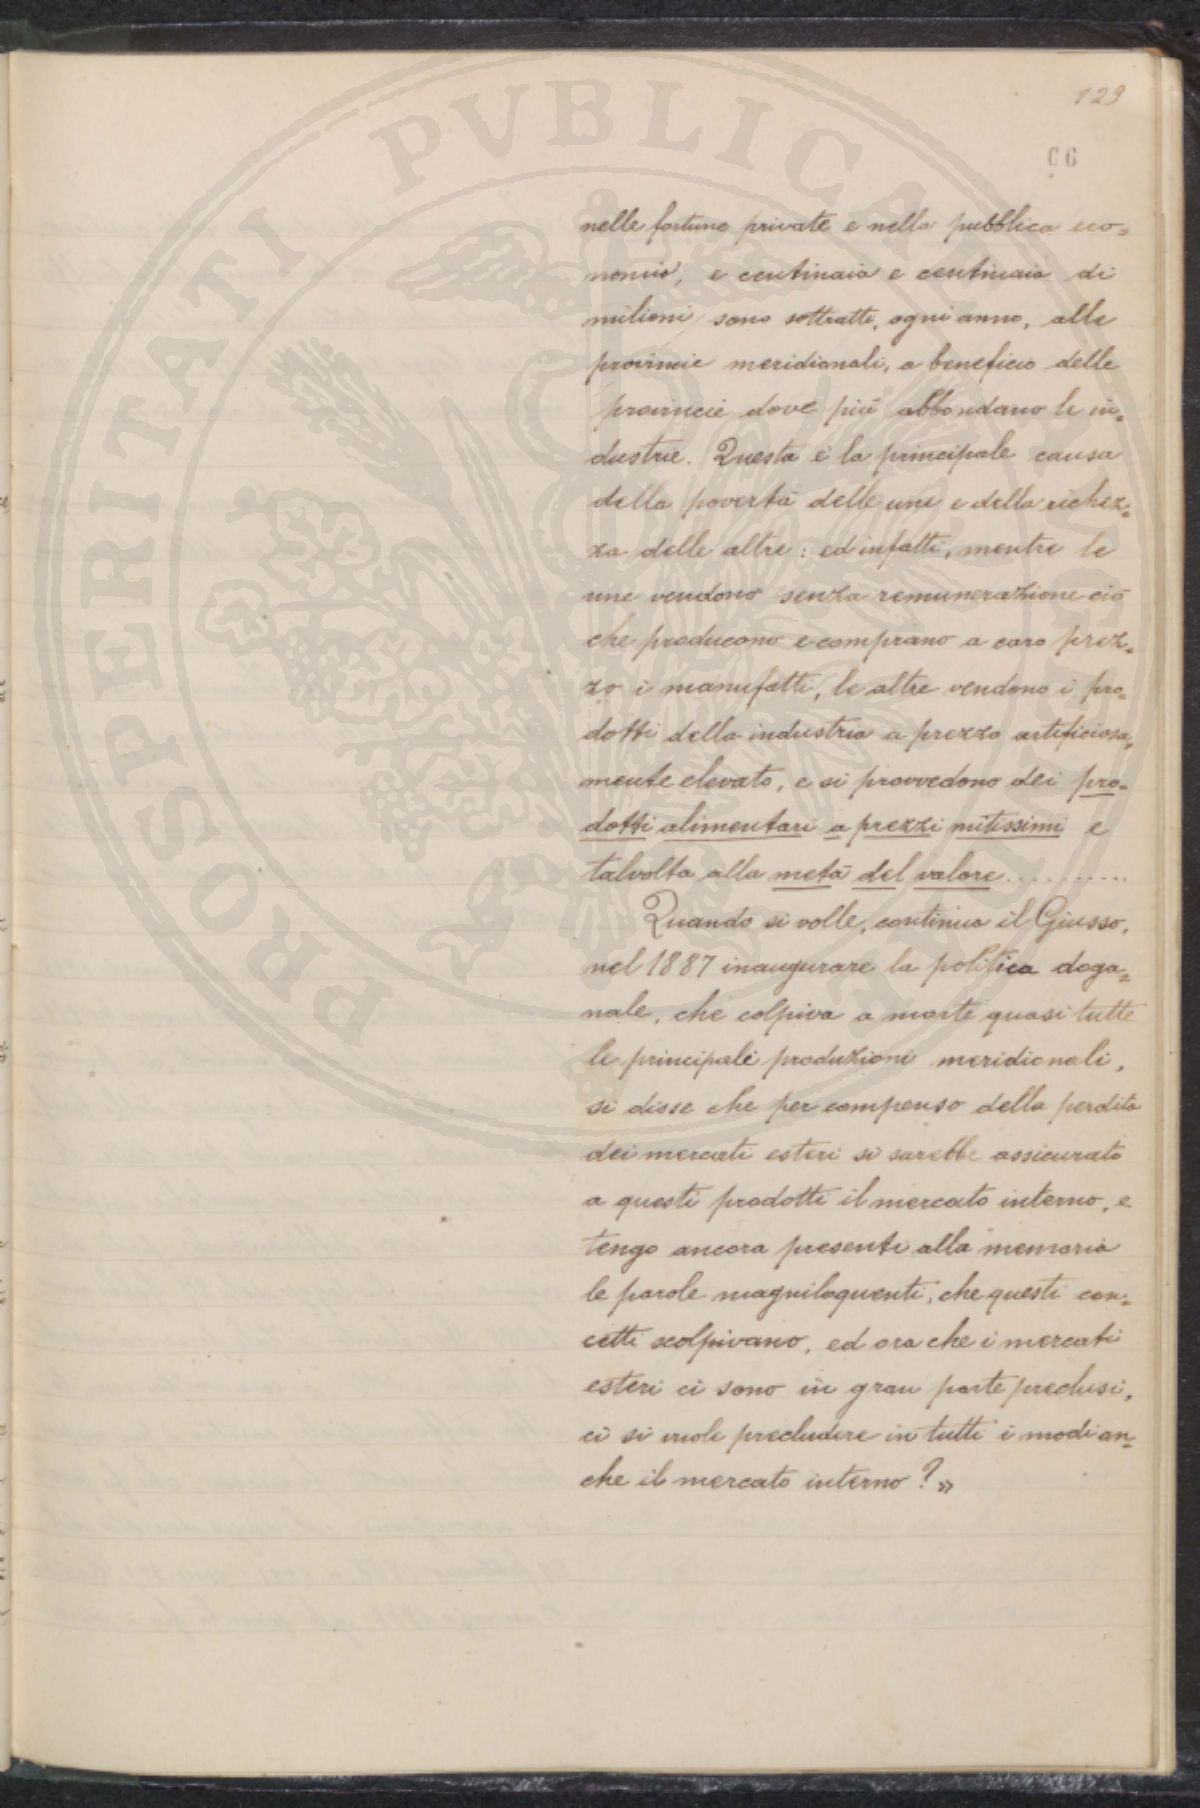 129
96
nelle fortune private e nella pubblica eco=
nomia, e centinaia e centinaia di
milioni sono sottratti, ogni anno, alle
provincie meridionali, a beneficio delle
provincie dove più abbondano le in=
dustrie. Questa è la principale causa
della povertà delle une e della richez=
za delle altre: ed infatti, mentre le
une vendono senza remunerazione ciò
che producono e comprano a caro prez=
zo i manufatti, le altre vendono i pro=
dotti della industria a prezzo artificiosa=
mente elevato, e si provvedono dei pro=
dotti alimentari a prezzi mitissimi e
talvolta alla metà del valore..........
Quando si volle, continua il Giusso,
nel 1887 inaugurare la politica doga=
nale, che colpiva a morte quasi tutte
le principali produzioni meridionali,
si disse che per compenso della perdita
dei mercati esteri si sarebbe assicurato
a questi prodotti il mercato interno, e
tengo ancora presenti alla memoria
le parole magniloquenti, che questi con=
cetti scolpivano, ed ora che i mercati
esteri ci sono in gran parte preclusi,
ci si vuole precludere in tutti i modi an=
che il mercato interno?»
PROSPERITATI PVBLICAE